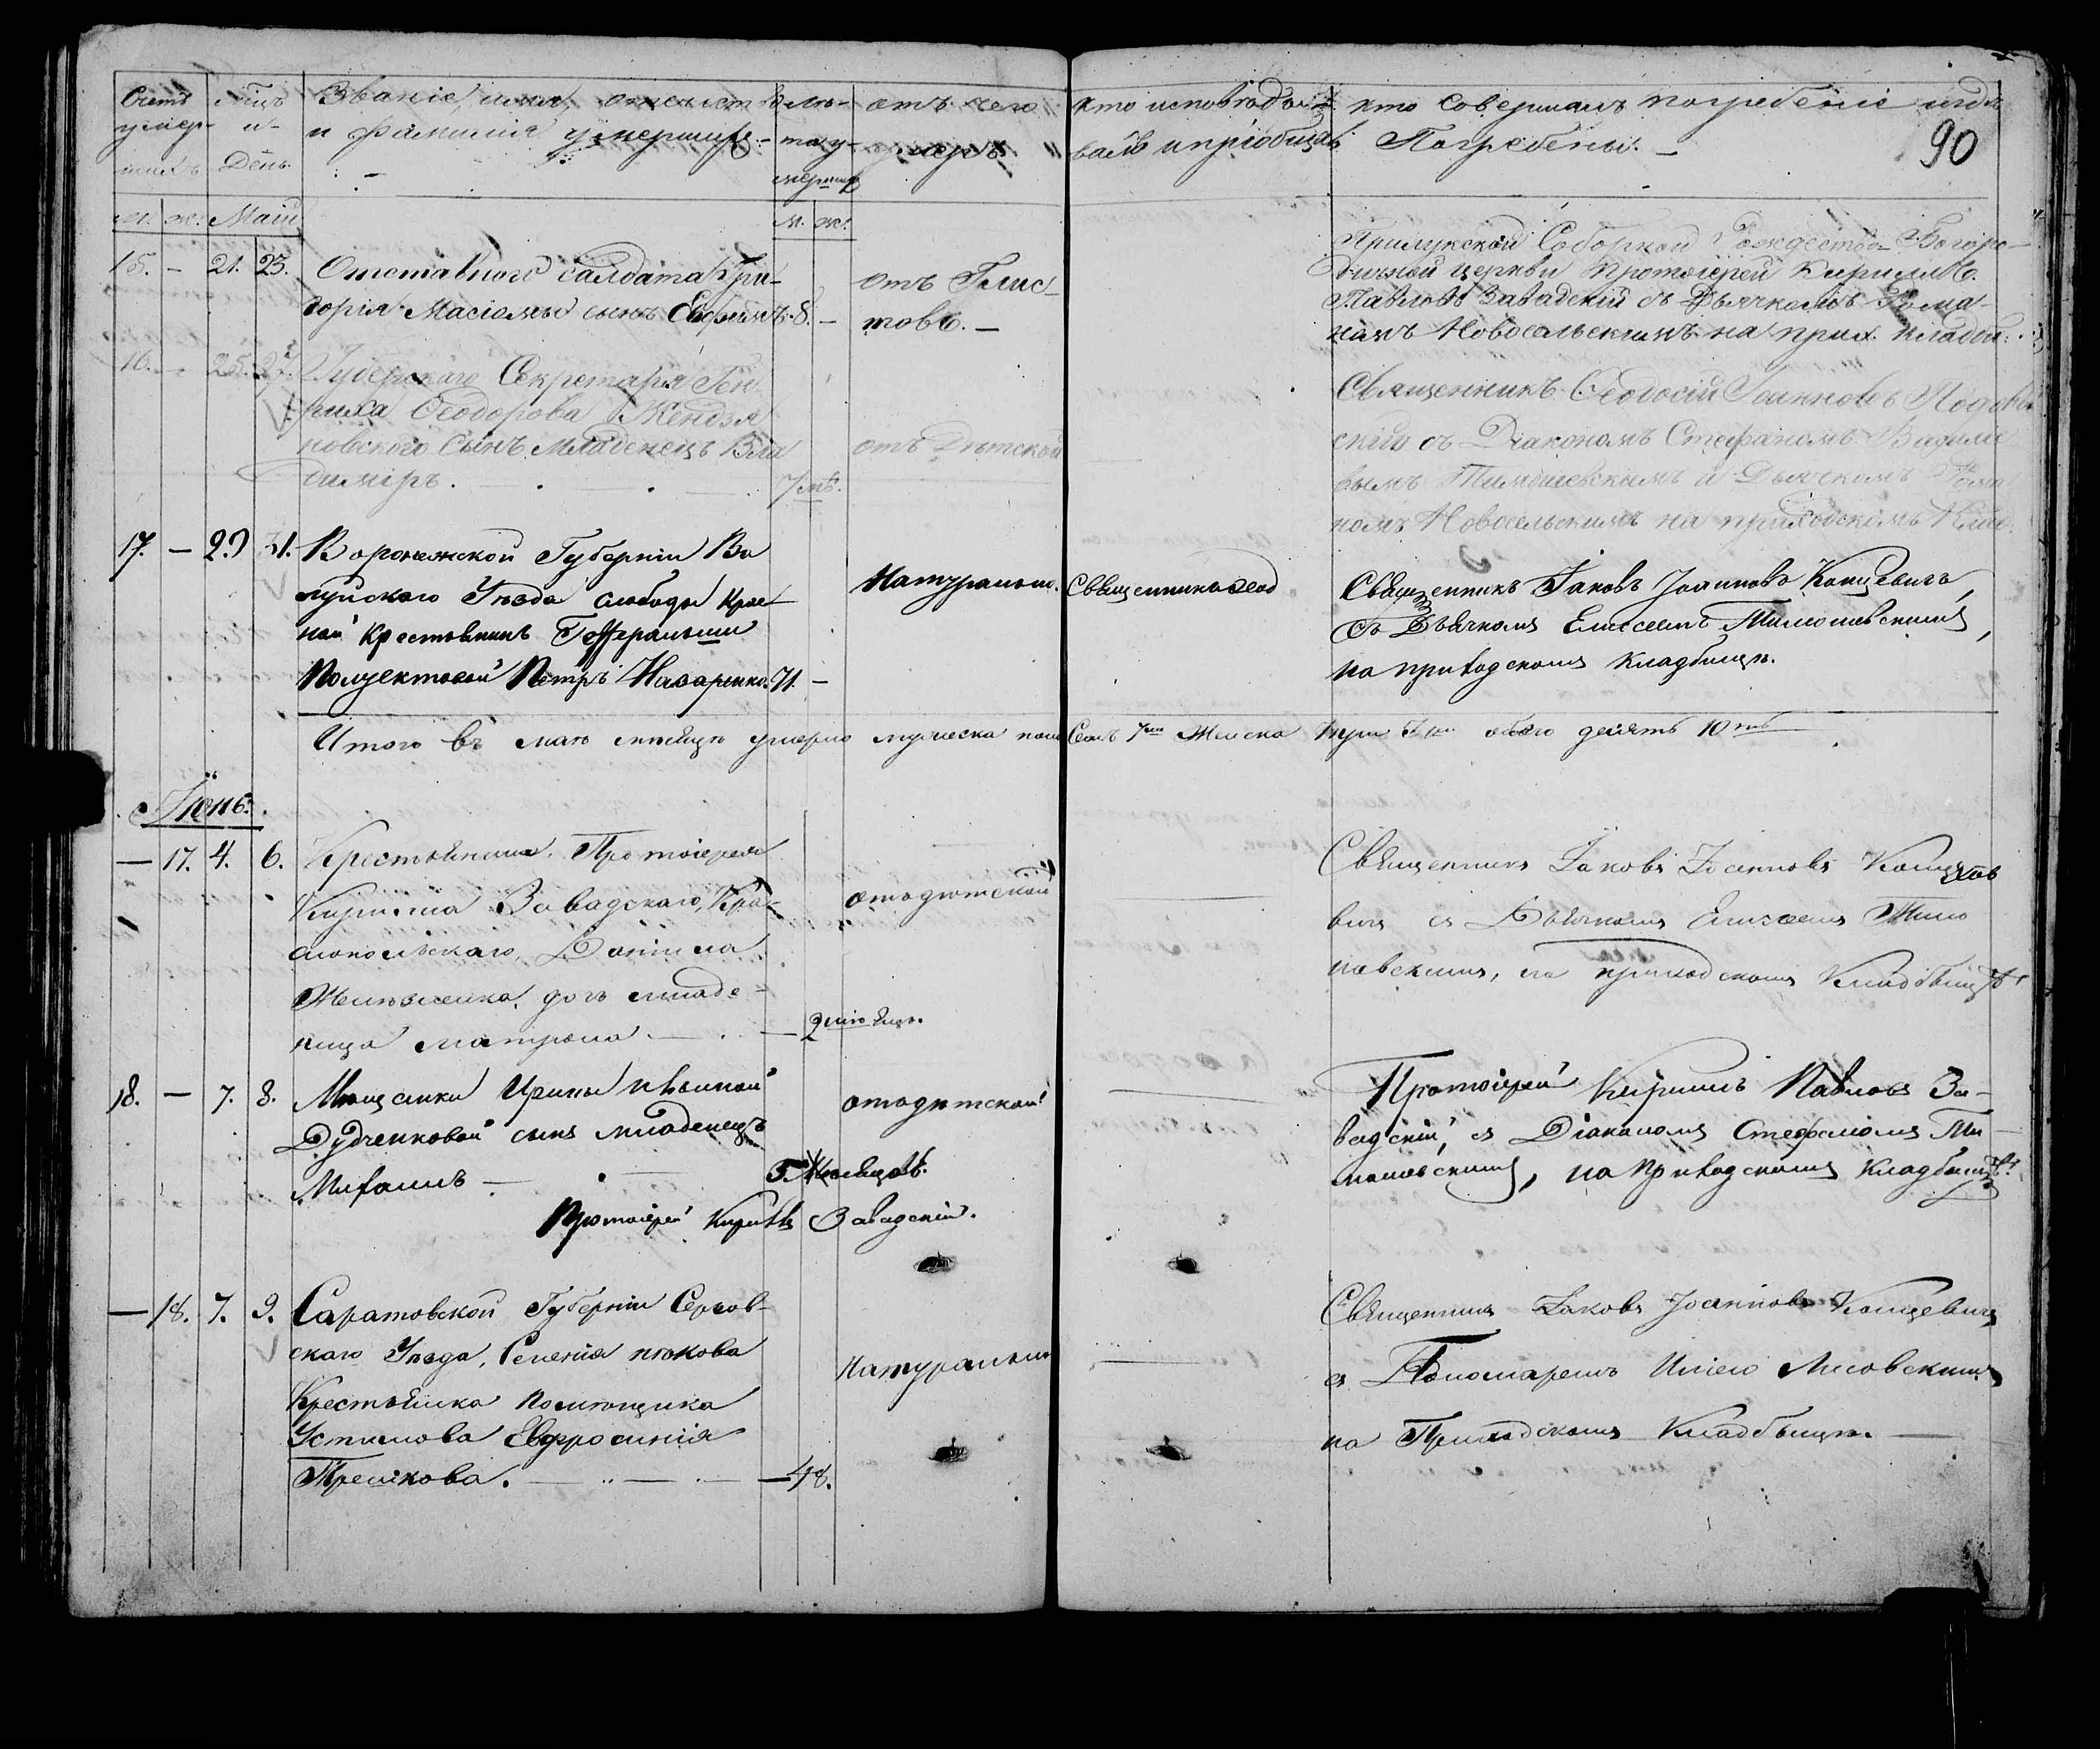 Счетъ умер-
шихъ
М-цъ
и
День
Званіе, имя, отчеств
и фамилія умерших
Лѣ-
та у-
мершихъ
отъ чего
умеръ.
кто исповѣды-
валъ и пріобщалъ
кто совершалъ погребеніе и гдѣ
Погребены.
90
м. ж. Маій
м. ж.
15. — 21. 23. Отставного салдата Гри-
горія Масіомы сынъ Ефремъ. 8. —
отъ Глис-
товъ. —
Прилукской Соборной Рождество-Богоро-
дичной церкви протоіерей Кириллъ
Павловъ Завадскій съ Дьячкомъ Рома-
номъ Новосельскимъ на прих. кладби.
16. — 25. 27. Губерскаго Секретаря Ген
риха Ѳеодорова Жендзя
новского Сынъ Младенецъ Вла
димиръ. 7 мѣ.
отъ Дѣтской
Священникъ Ѳеодосій Іоанновъ
скій съ Діакономъ Стефаномъ Василіе
вымъ Тимошевскимъ и Дьячкомъ Рома
номъ Новосельскимъ на приходскомъ Клад.
17. — 29 31. Воронежской Губерніи Ва
луйского Уѣзда слободы Крас
ной крестьянинъ Генеральши
Полуектовой Петръ Назаренко. 71. —
Натурально.
Священникъ
Священникъ Іаковъ Іоанновъ Концевичъ,
съ Дьячкомъ Елисеемъ Тимошевскимъ,
на приходскомъ кладбищѣ.
Итого въ маѣ мѣсяцѣ умерло мужеска пола Семь 7мь Женска три 3 обоего десять 10ть
Іюнь.
— 17. 4. 6. Крестьянина Протоіерея
Кирилла Завадскаго, Кра-
снопольскаго, Даніила
дочь младе-
ница матрона — 2 мѣсяц.
отъ дѣтской
Священникъ Іаковъ Іоанновъ Конце
вичъ съ Дьячкомъ Елисеемъ Тимо
шевскимъ, на приходскомъ Кладбищѣ
18. — 7. 8. Мѣщанки Ирины Ивановой
Дудченковой сынъ младенецъ
Михаилъ — 5. Мѣсяцовъ.
отъ дѣтской
Протоіерей Кириллъ Павловъ За-
вадскій, съ Діакономъ Стефаномъ Ти
мошевскимъ, на приходскомъ кладбищѣ
Протоіерей Кириллъ Завадскій.
— 18. 7. 9. Саратовской Губерніи Сердоб-
скаго Уѣзда, Селенія
Крестьянка помѣщика
Устинова Евфросинія
— 48.
Натурально
Священникъ Іаковъ Іоанновъ Концевичъ
съ Пономаремъ Иліею Лисовскимъ
на Приходскомъ Кладбищѣ. —